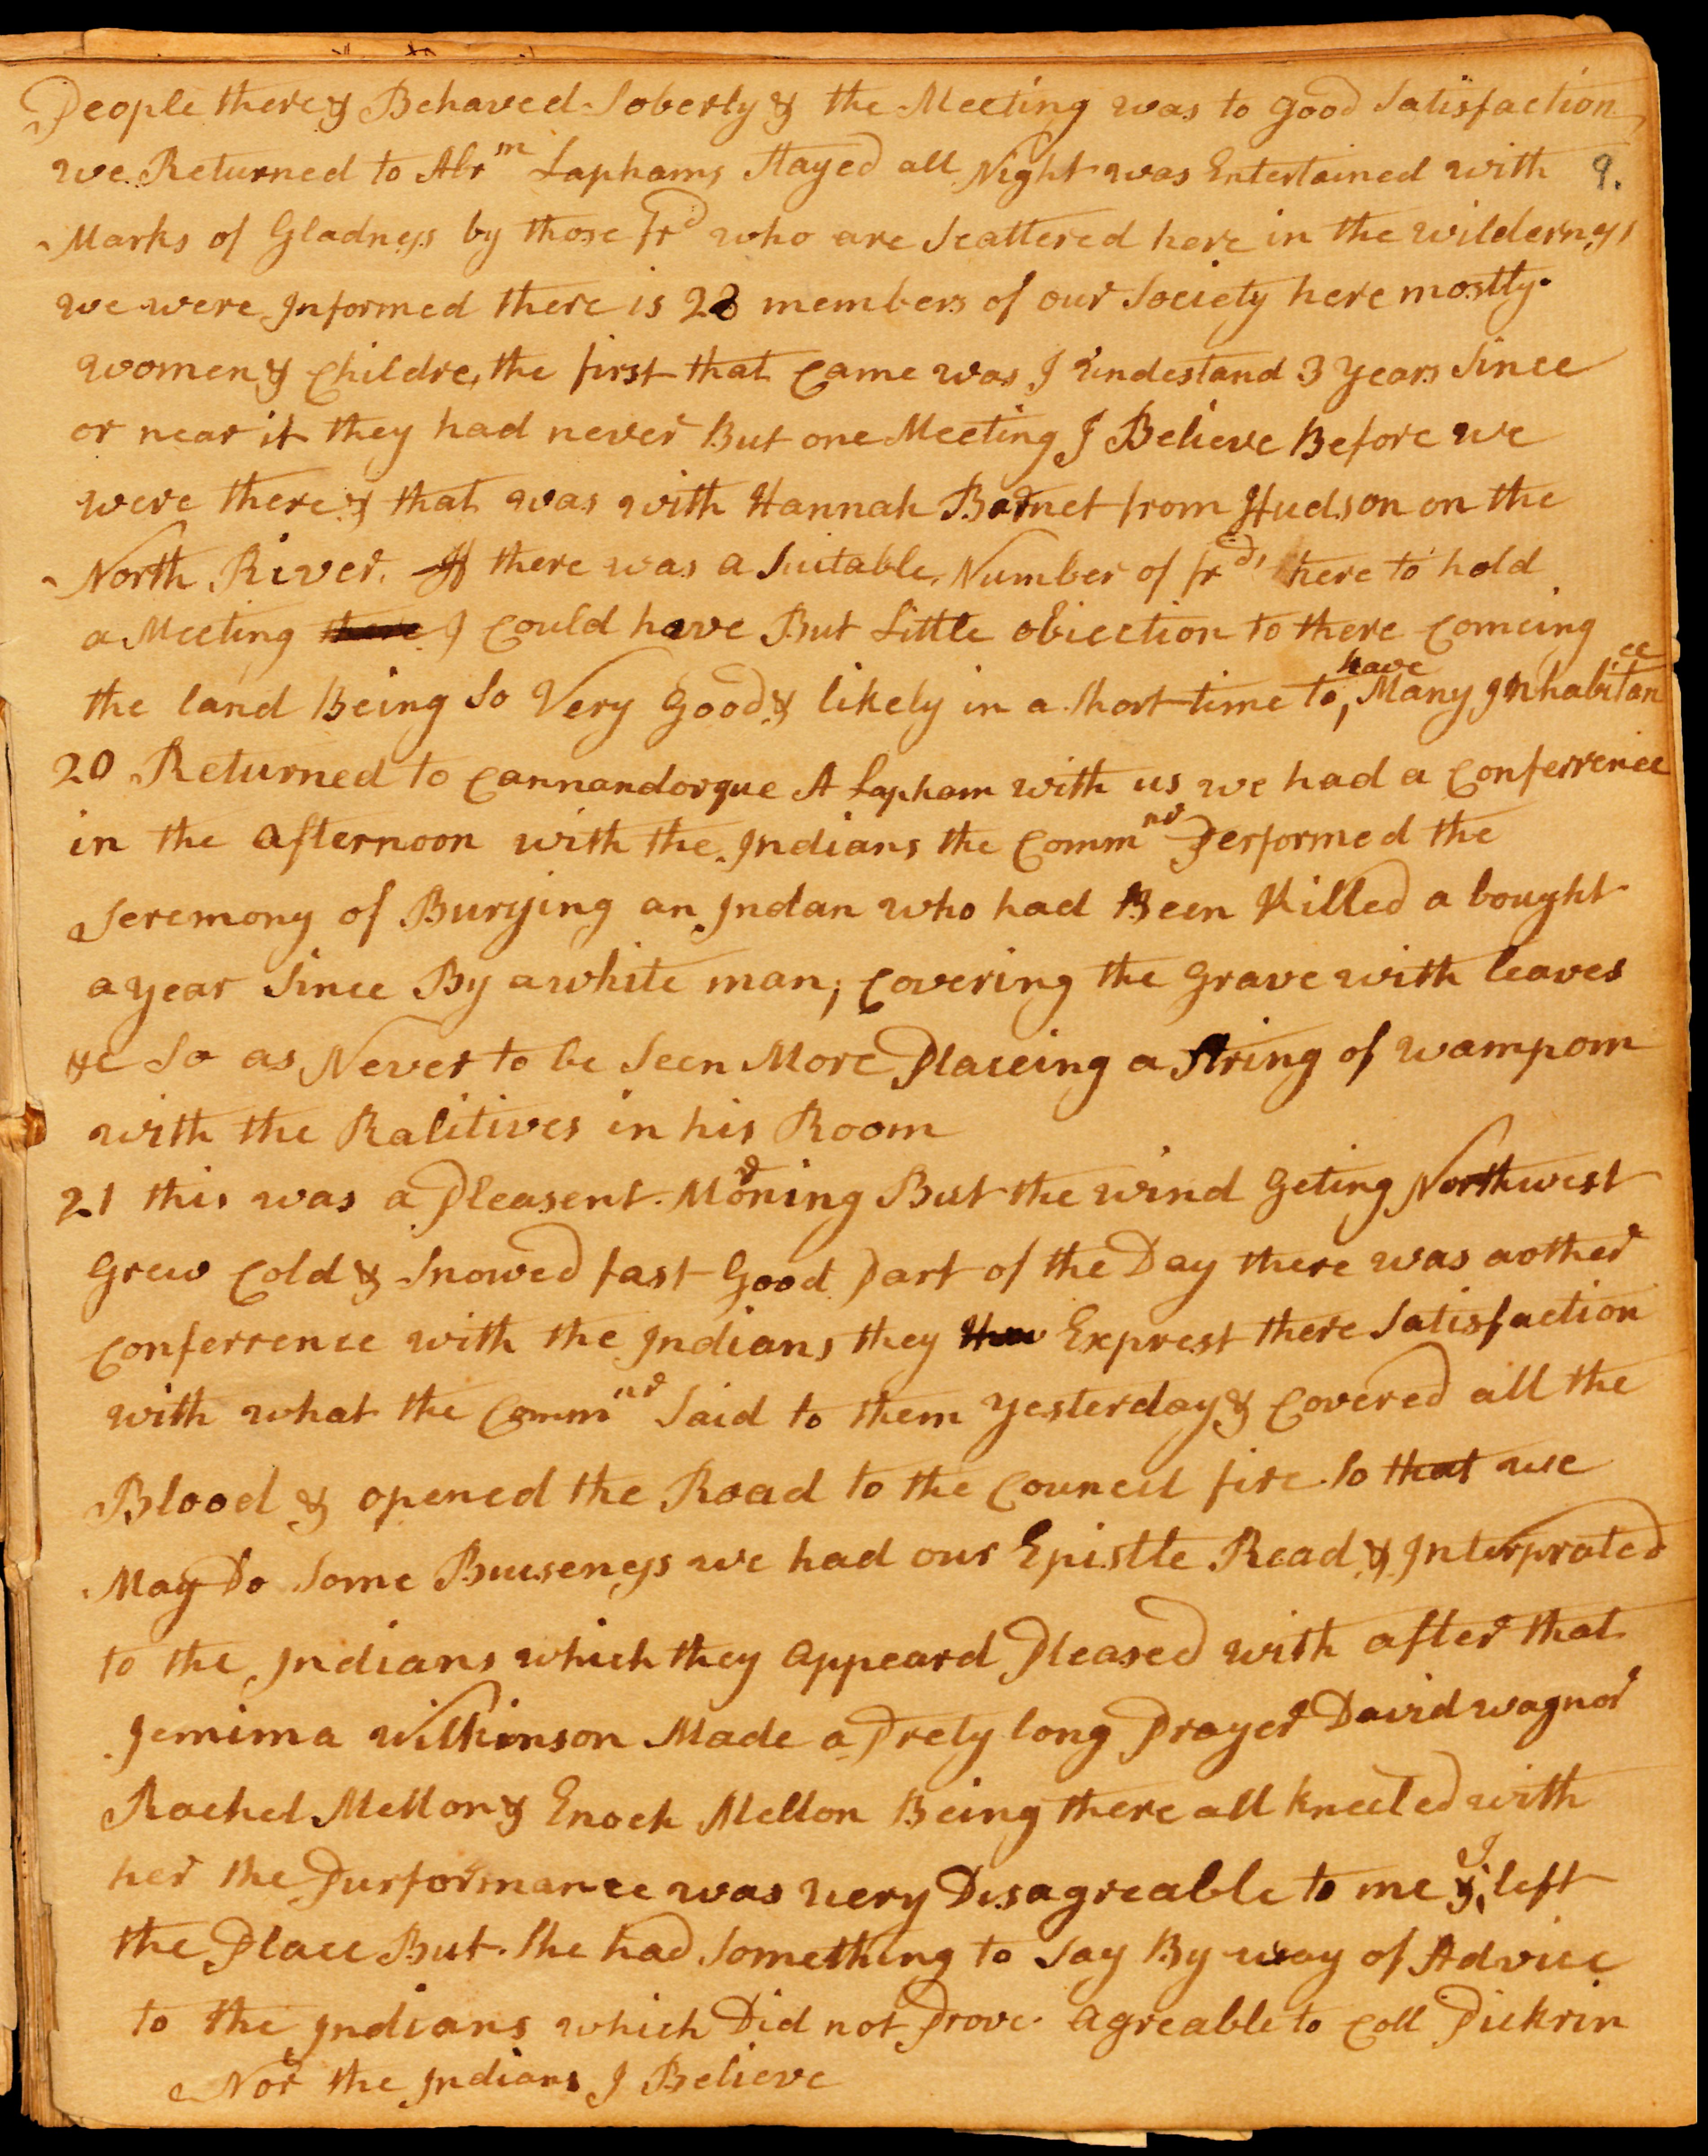 People there & Behaved Soberly & the Meeting was to good Satisfaction
we Returned to Abrm Laphams Stayed all Night was Entertained with 9.
Marks of Gladness by those frd who are Scattered here in the wilderness
we were Informed there is 28 members of our Society here mostly
women & Childre, the first that Came was I undestand 3 years Since
or near it they had never But one Meeting I Believe Before we
were there & that was with Hannah Barnet from Hudson on the
North River. If there was a Suitable Number of frds here to hold
a Meeting there I Could have But Little obiection to there Comeing
the land Being So Very Good & likely in a Short time to, have Many Inhabitance
20 Returned to Cannandorque A Lapham with us we had a Conferrence
in the afternoon with the Indians the Commnr Performed the
Seremony of Burying an Indan who had Been Killed a bought
a year Since By a white man; Covering the Grave with leaves
&c So as Never to be Seen More Placeing a String of wampom
with the Ralitives in his Room
21 this was a Pleasent Morning But the wind Geting Northwest
Grew Cold & Snowed fast Good Part of the Day there was aother
Conferrence with the Indians they Exprest there Satisfaction
with what the Commnr Said to them yesterday & Covered all the
Blood & opened the Road to the Councel fire So that we
May Do Some Buiseness we had our Epistle Read & Interprated
to the Indians which they appeard Pleased with after that
Jemima Wilkinson Made a Prety long Prayer David wagnor
Rachel Mellon & Enoch Mellon Being there all kneeled with
her the Purformance was very Disagreable to me & I left
the Place But She had Something to Say By way of Advice
to the Indians which Did not Prove agreable to Coll Pickrin
Nor the Indians I Believe